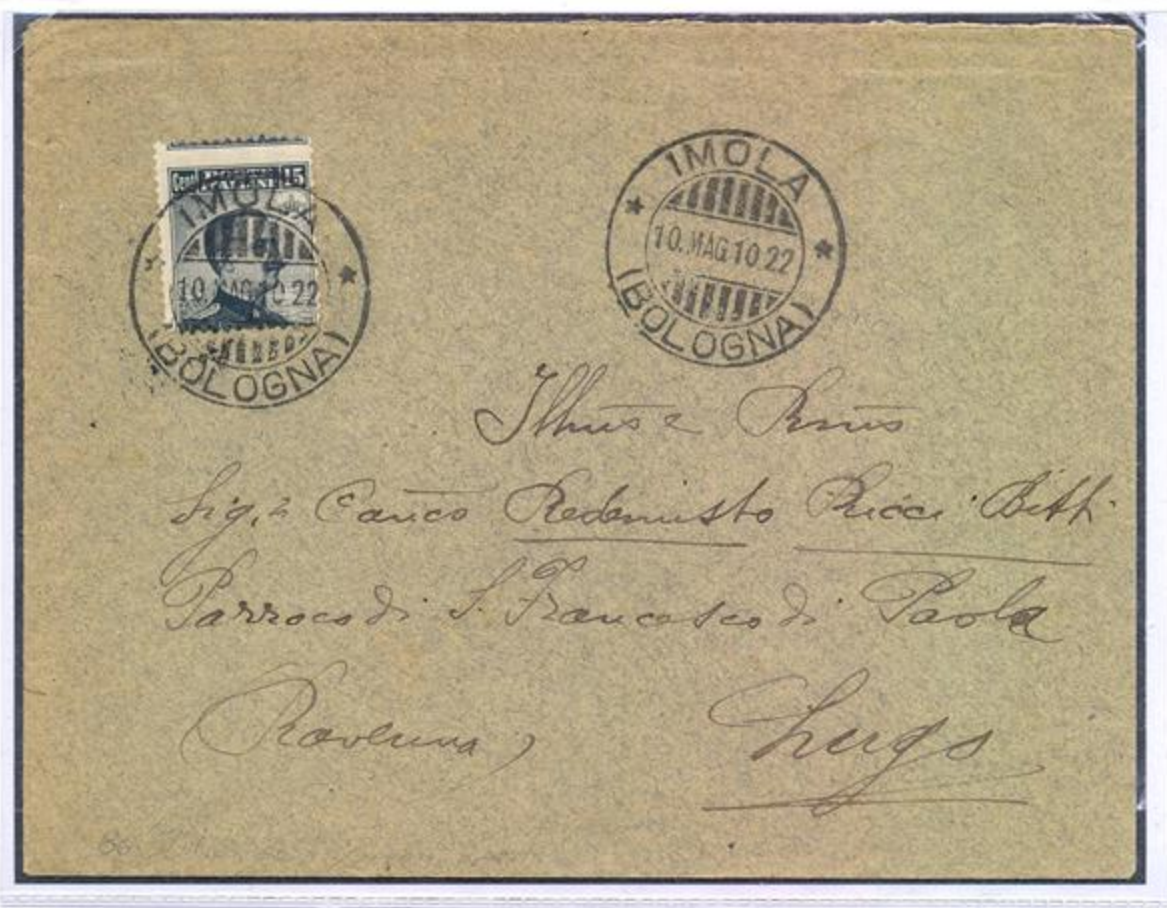 Cent. 15
IMOLA
10.MAG10.22
(BOLOGNA)
IMOLA
10.MAG10.22
(BOLOGNA)
Illmo e Rmo
Sig.r Canco Redemisto Ricci Bitti
Parroco di S. Francesco di Paola
(Ravenna)
Lugo